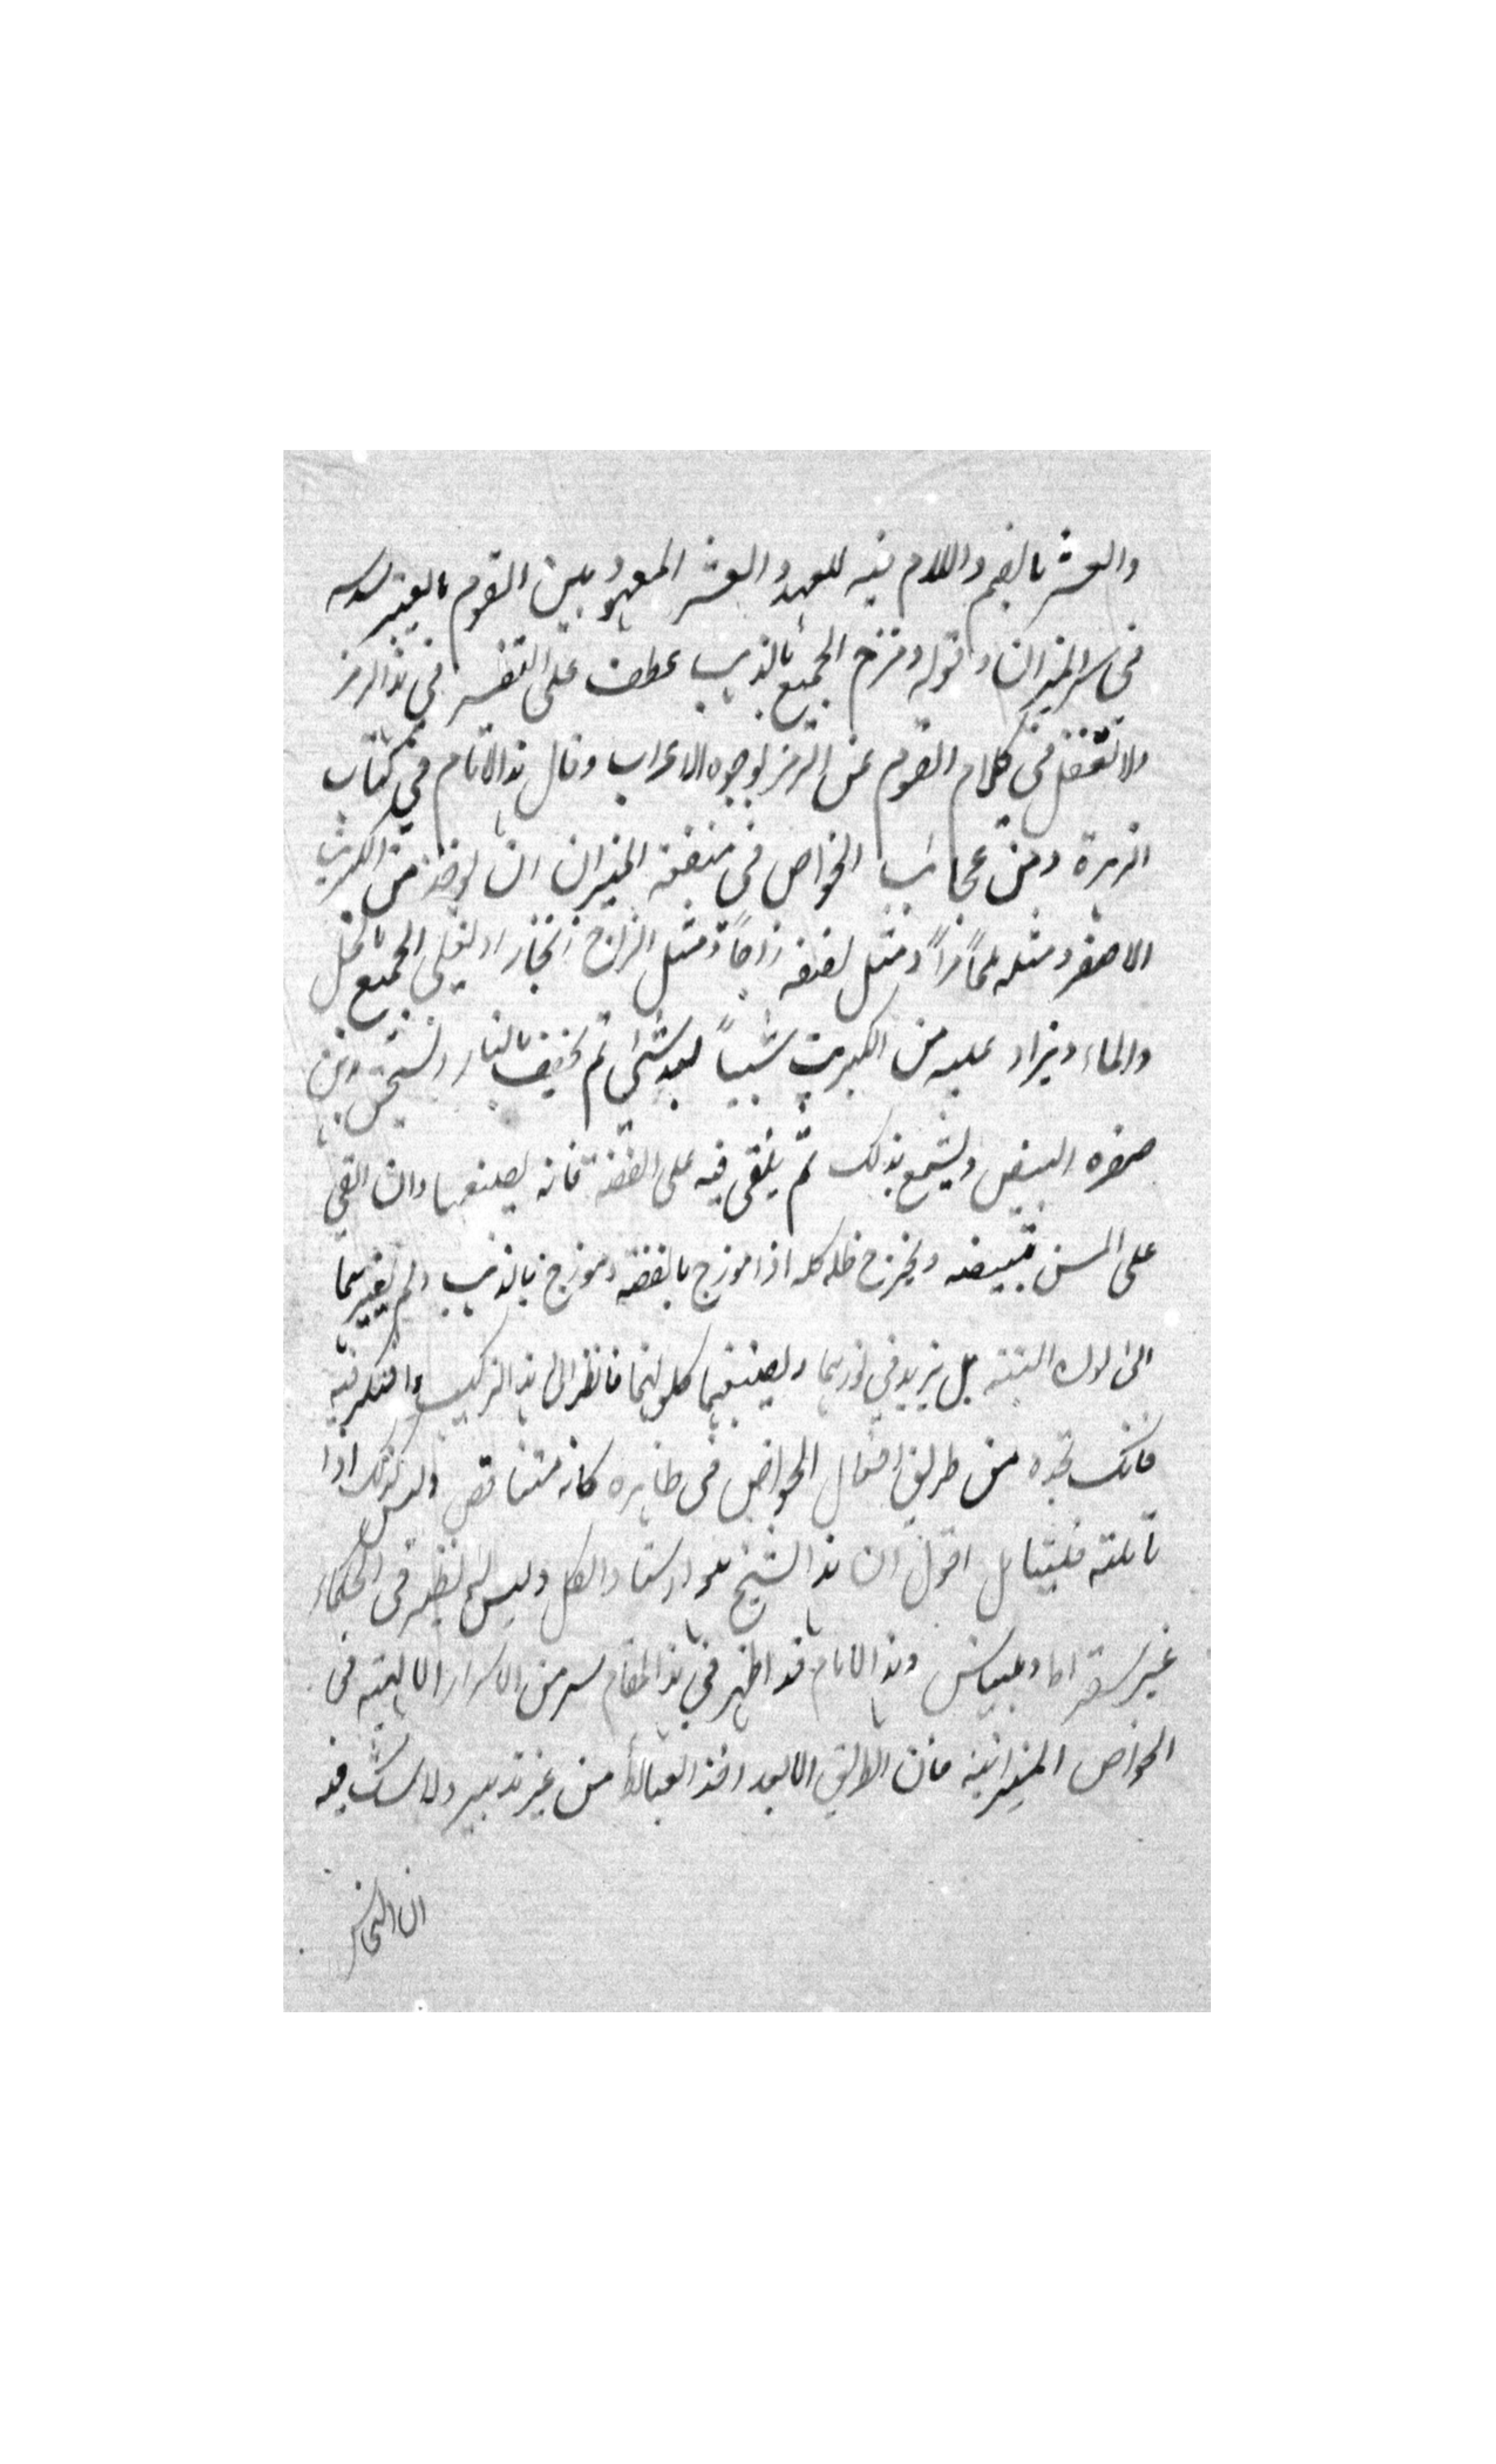 والعشر بالضم واللام فيه للعهد والعشر المعهود بين القوم بالعشر
في سر الميزان وقوله ومزج الجميع بالذهب عطف على التفسير في هذا الرمز
ولا تغفل في كلام القوم عن الرمز بوجوه الاعراب وقال هذا الامام في كتاب
الزهرة ومن عجائب الخواص في منفعة الميزان ان يوخذ من الكبريت
الاصفر ومثله ملحاً مراً ومثل نصفه زاجاً ومثل الزاج زنجار او يغلى الجميع بالخل
والماء ويزاد عليه من الكبريت شيياً بعد شئ ثم يجفف بالنار ويسحق ومن
صفره البيض ويشمع بذلك ثم يلقى فيه على الفضة فانه يصبغها وان القى
على المس تبييضه ويخرج ظله كله اذا موزج بالفضة وموزج بالذهب لم يغيرهما
الى لون البتة بل يزيد في لونهما ويصبغهما كلونهما فانظر الى هذا التركيب وافتكر فيه
فانك تجده من طريق افعال الخواص في ظاهره كانه متناقض وليس كذلك اذا
تاملته فليتامل اقول ان هذا الشيخ هو استاد الكل وليس له نظير في الحكماء
غير سقراط وبليناس وهذا الامام قد اظهر في هذا المقام سر من الاسرار الالهية في
الخواص الميزانية فان الطريق الابعد اخذ العبائط من غير تدبير ولا شك فيه
ان النحاس